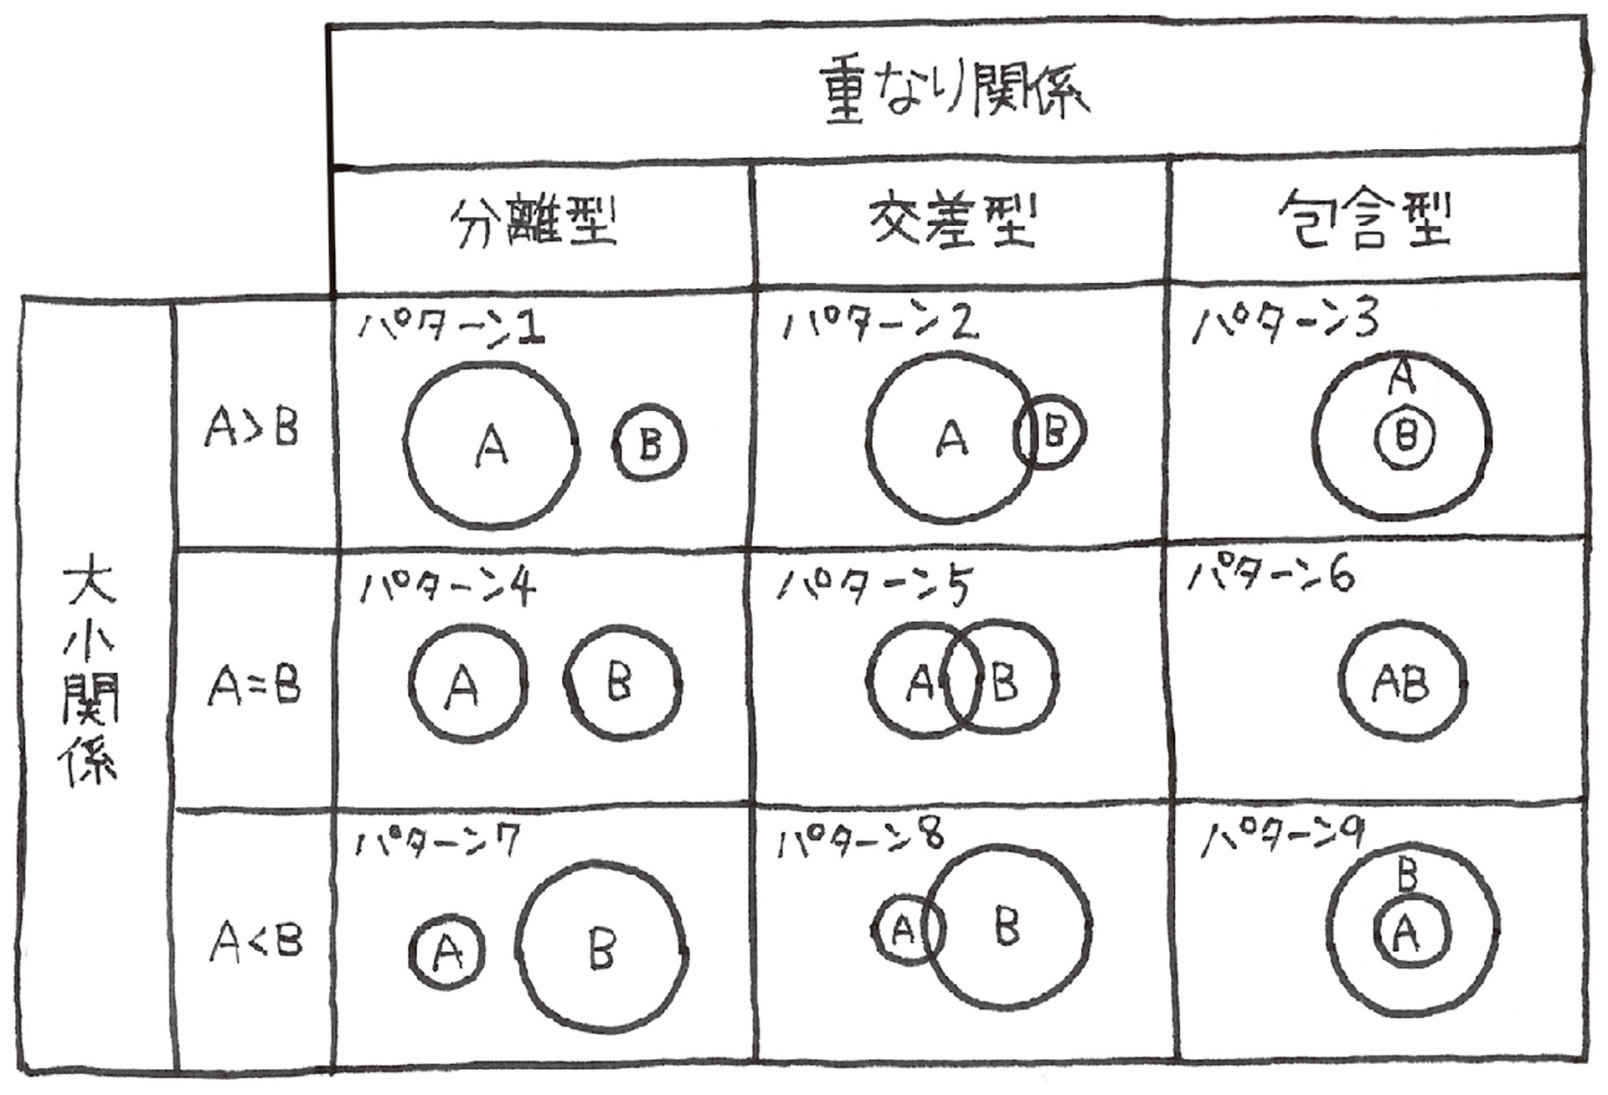 重なり関係
分離型
交差型
包含型
大小関係
A>B
パターン1
A
B
パターン2
A
B
パターン3
A
B
A=B
パターン4
A
B
パターン5
A
B
パターン6
AB
A<B
パターン7
A
B
パターン8
A
B
パターン9
B
A